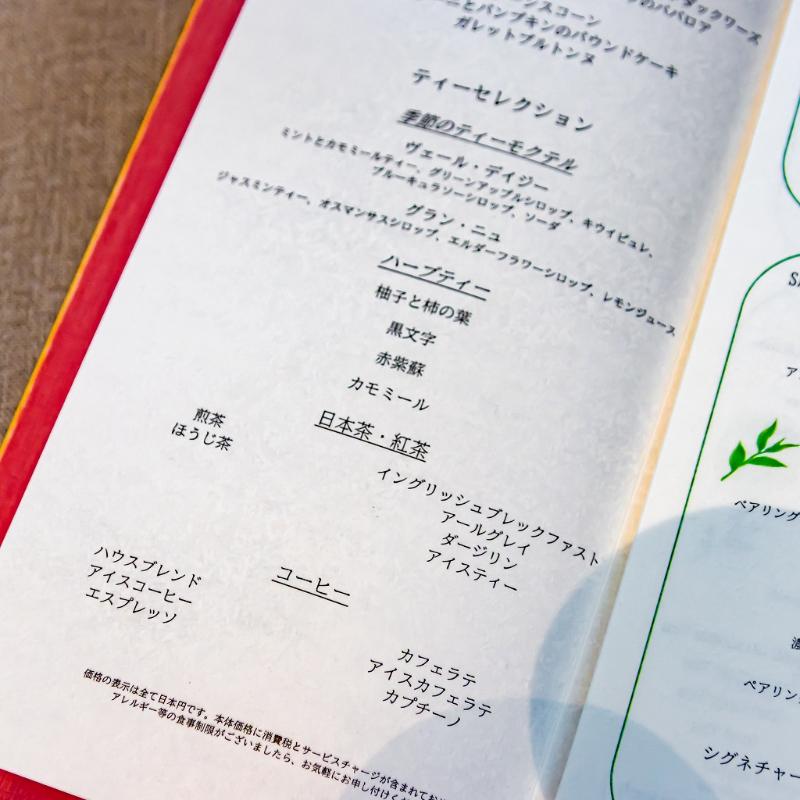 ダックワーズ
のババロア
スコーン
ニとパンプキンのパウンドケーキ
ガレットブルトンヌ
ティーセレクション
季節のティーモクテル
ヴェール・デイジー
ミントとカモミールティー、グリーンアップルシロップ、キウイピュレ、
ブルーキュラソーシロップ、ソーダ
グラン・ニュ
ジャスミンティー、オスマンサスシロップ、エルダーフラワーシロップ、レモンジュース
ハーブティー
柚子と柿の葉
黒文字
赤紫蘇
カモミール
日本茶・紅茶
煎茶
ほうじ茶
イングリッシュブレックファスト
アールグレイ
ダージリン
アイスティー
コーヒー
ハウスブレンド
アイスコーヒー
エスプレッソ
カフェラテ
アイスカフェラテ
カプチーノ
価格の表示は全て日本円です。本体価格に消費税とサービスチャージが含まれてお
アレルギー等の食事制限がございましたら、お気軽にお申し付けくだ
ア
ペアリング
ペアリン
シグネチャー